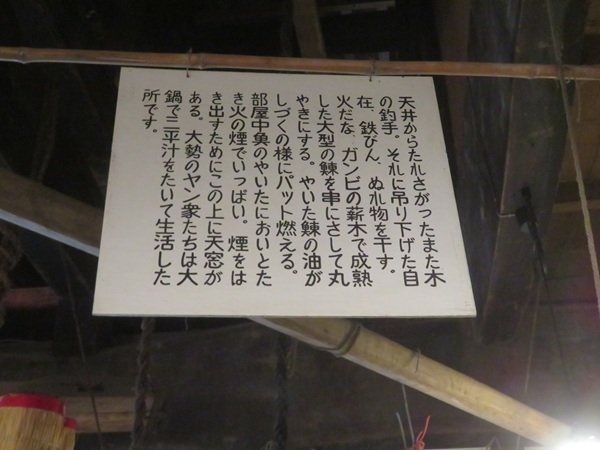 天井からたれさがったまた木
の釣手。それに吊り下げた自
在、鉄びん、ぬれ物を干す。
火だな、ガンビの薪木で成熟
した大型の鰊を串にさして丸
やきにする。やいた鰊の油が
しづくの様にパット燃える。
部屋中魚のやいたにおいとた
き火の煙でいっぱい。煙をは
き出すためにこの上に天窓が
ある。大勢のヤン衆たちは大
鍋で三平汁をたいて生活した
所です。